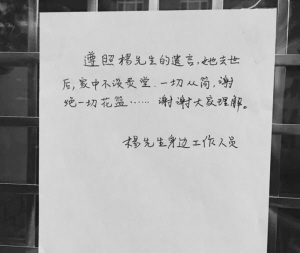 遵照杨先生的遗言,她去世
后,家中不设灵堂.一切从简,谢
绝一切花篮……谢谢大家理解。
杨先生身边工作人员